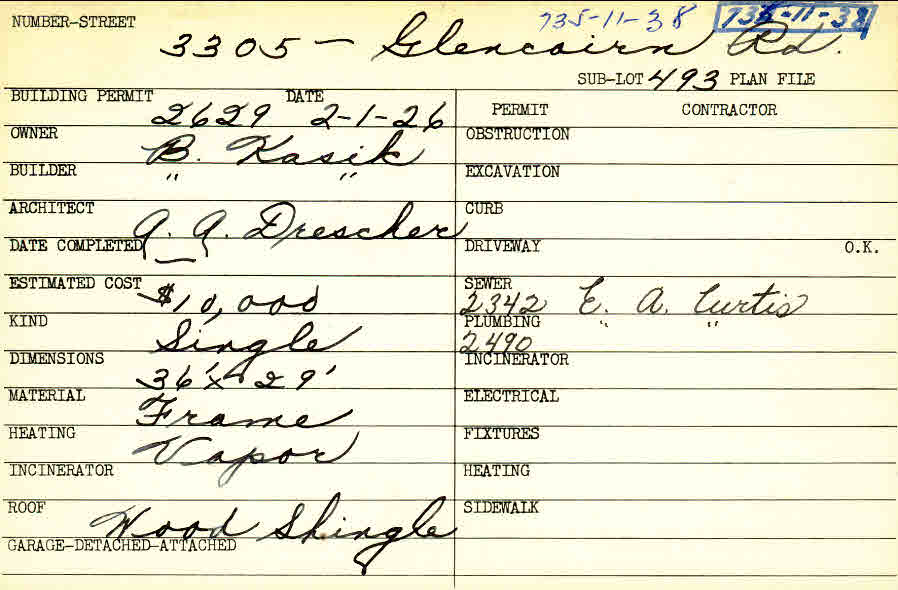 735-11-38 735-11-38
NUMBER-STREET
3305 - Glencairn Rd.
SUB-LOT 493 PLAN FILE
BUILDING PERMIT 2629 DATE 2-1-26
PERMIT CONTRACTOR
OWNER B. Kasik
OBSTRUCTION
BUILDER " "
EXCAVATION
ARCHITECT A. A. Drescher
CURB
DATE COMPLETED
DRIVEWAY O.K.
ESTIMATED COST $10,000
SEWER 2342 E. A. Curtis
KIND Single
PLUMBING 2490 " "
DIMENSIONS 36' x 29'
INCINERATOR
MATERIAL Frame
ELECTRICAL
HEATING Vapor
FIXTURES
INCINERATOR
HEATING
ROOF Wood Shingle
SIDEWALK
GARAGE-DETACHED-ATTACHED